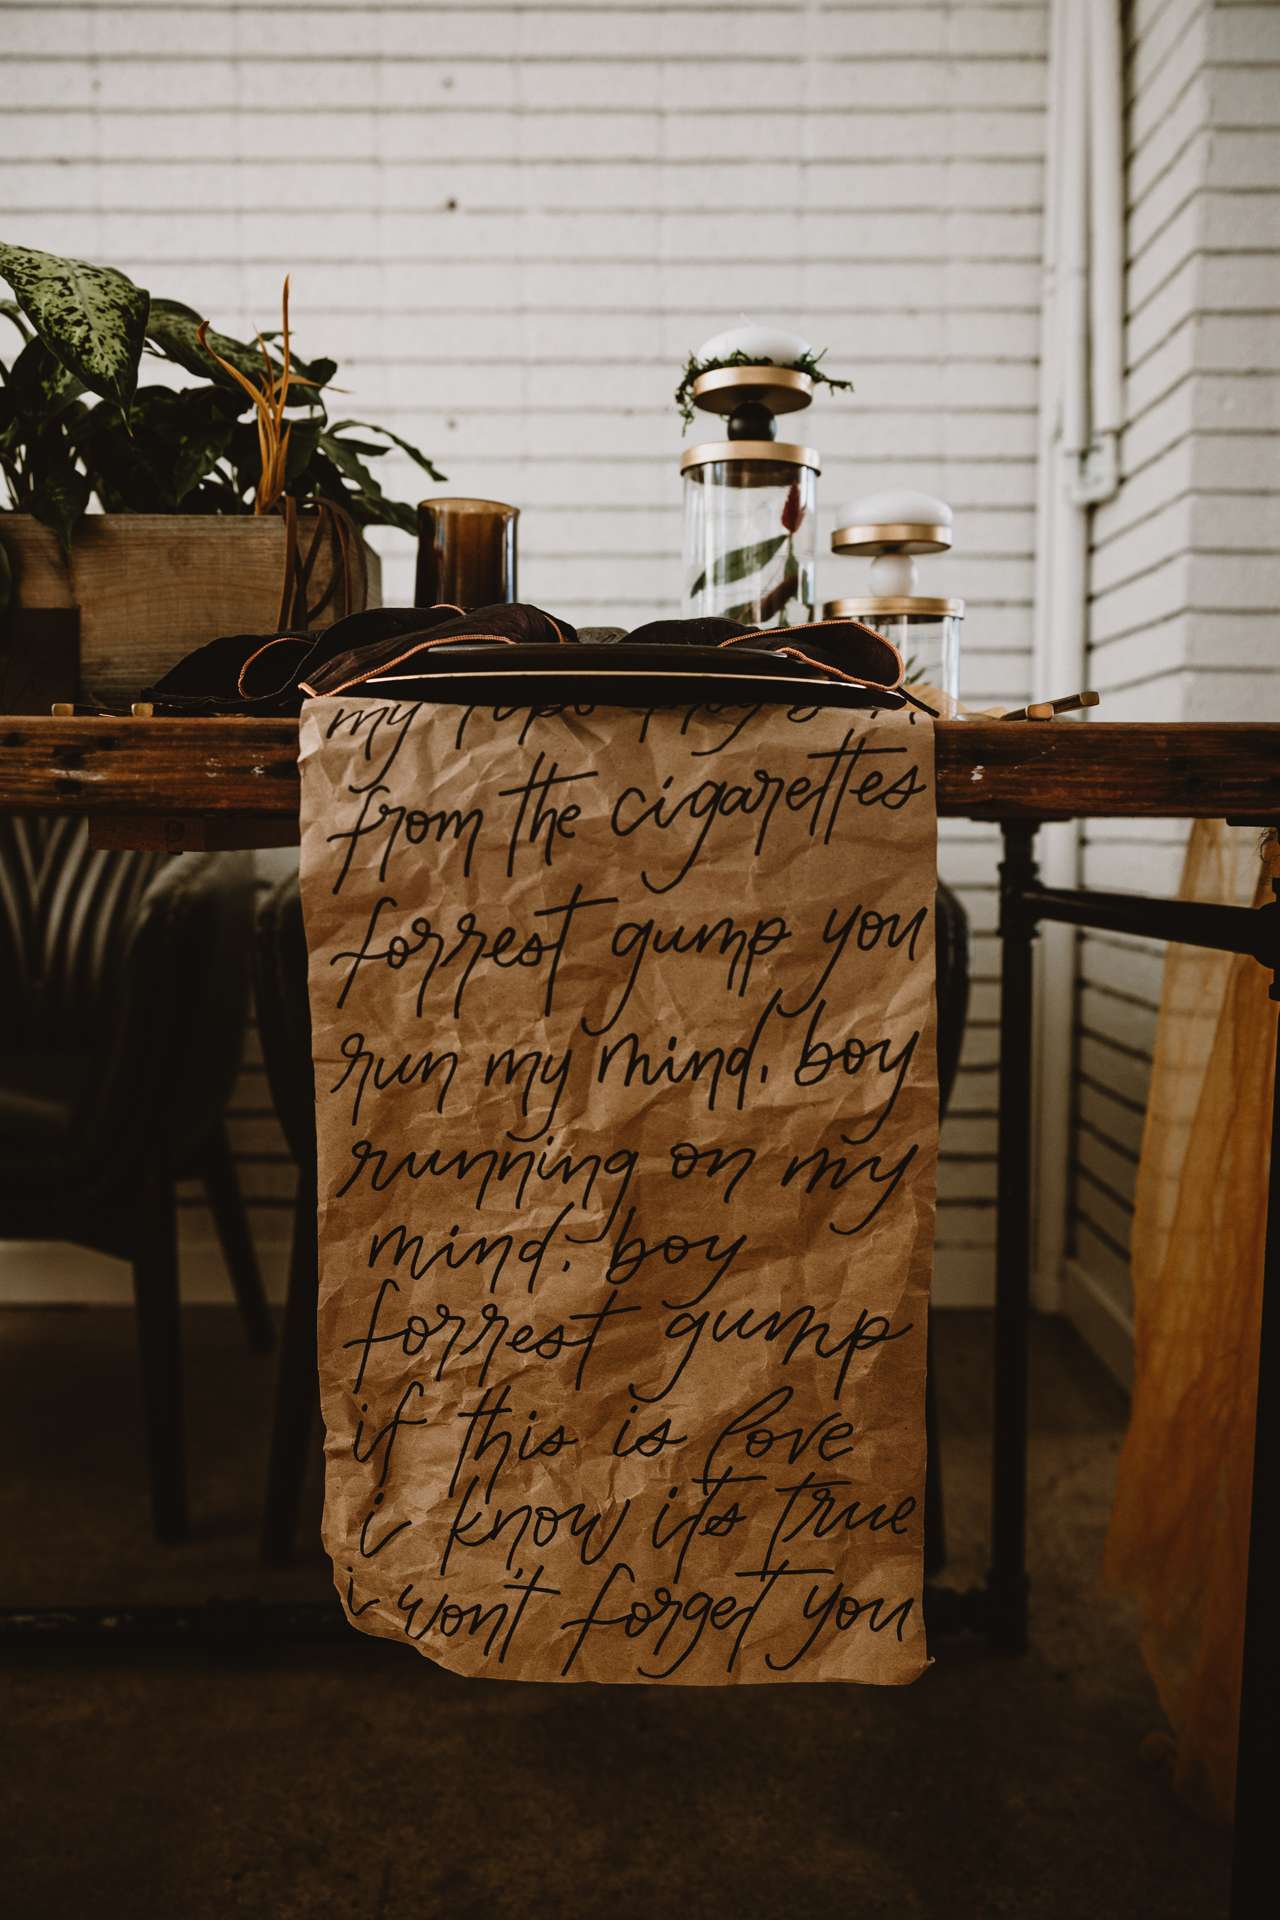 my
from the cigarettes
forrest gump you
run my mind, boy
running on my
mind, boy
forrest gump
if this is love
i know it's true
i won't forget you